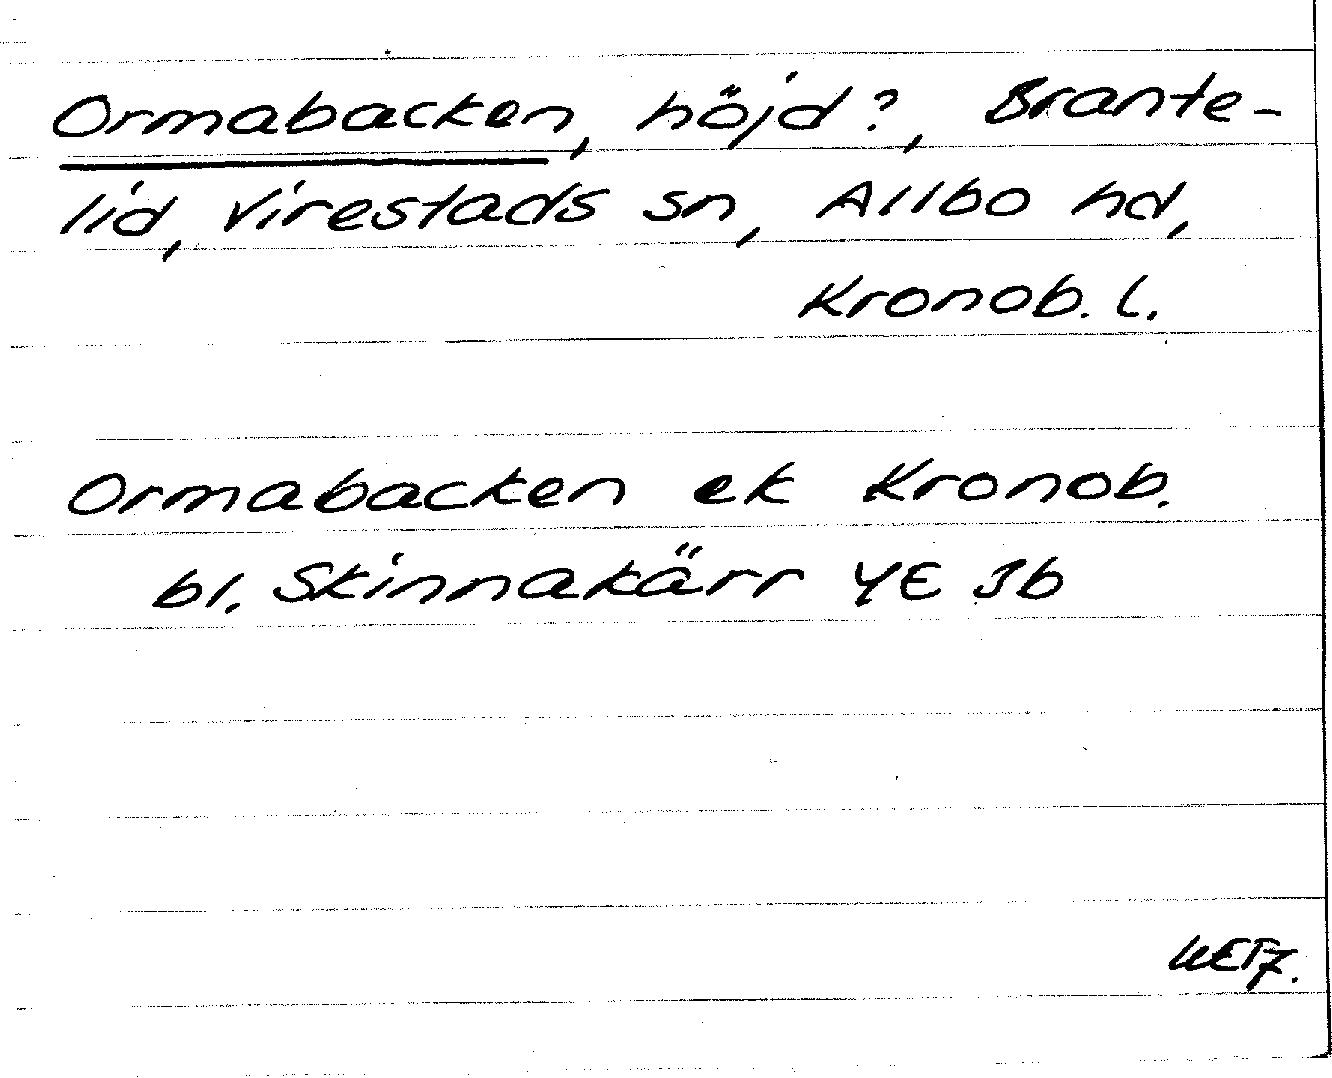 Ormabacken, höjd?, Brante-
lid, Virestads sn, Allbo hd,
Kronob. l.
Ormabacken ek Kronob.
bl. Skinnakärr 4E 3b